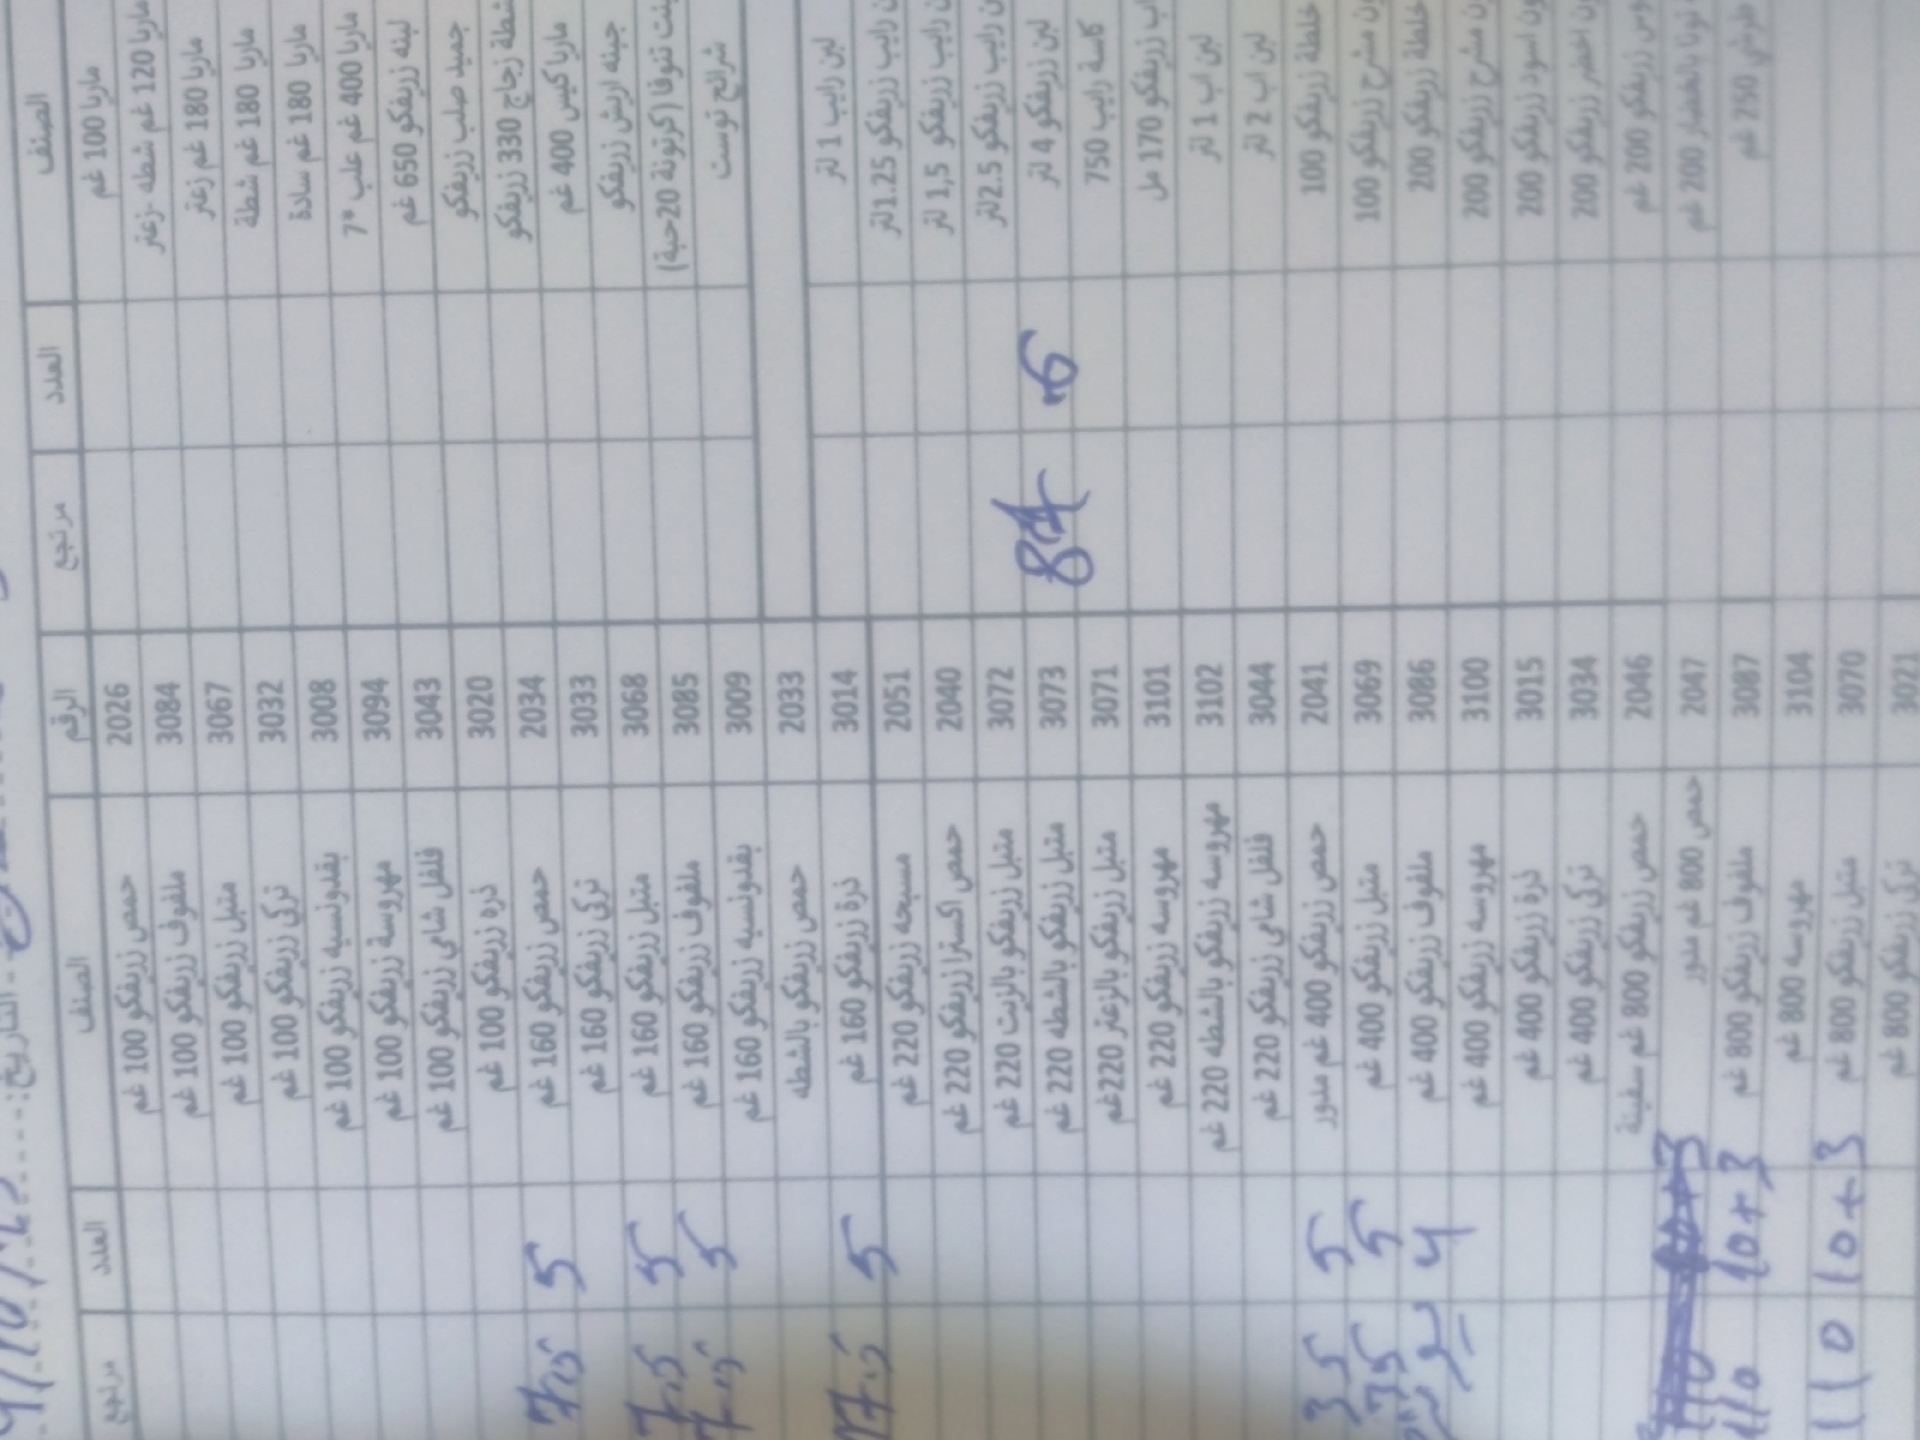 التاريخ:
مرتجع العدد الصنف الرقم مرتجع العدد الصنف
حمص زريفكو 100 غم 2026 ماريا 100 غم
ملفوف زريفكو 100 غم 3084 ماريا 120 غم شطه -زعتر
متبل زريفكو 100 غم 3067 ماريا 180 غم زعتر
تركي زريفكو 100 غم 3032 ماريا 180 غم شطة
بقدونسيه زريفكو 100 غم 3008 ماريا 180 غم سادة
مهروسة زريفكو 100 غم 3094 ماريا 400 غم علب *7
فلفل شامي زريفكو 100 غم 3043 لبنه زريفكو 650 غم
ذره زريفكو 100 غم 3020 جميد صلب زريفكو
5 حمص زريفكو 160 غم 2034 شطة زجاج 330 زريفكو
تركي زريفكو 160 غم 3033 ماريا كيس 400 غم
5 متبل زريفكو 160 غم 3068 جبنه اريش زريفكو
5 ملفوف زريفكو 160 غم 3085 تنوفا (كرتونة 20حبة)
بقدونسيه زريفكو 160 غم 3009 شرائح توست
حمص زريفكو بالشطه 2033
5 ذرة زريفكو 160 غم 3014 لبن رايب 1 لتر
مسبحه زريفكو 220 غم 2051 رايب زريفكو 1.25لتر
حمص اكسترا زريفكو 220 غم 2040 رايب زريفكو 1,5 لتر
متبل زريفكو بالزيت 220 غم 3072 رايب زريفكو 2.5لتر
متبل زريفكو بالشطه 220 غم 3073 84 6 لبن زريفكو 4 لتر
متبل زريفكو بالزعتر 220غم 3071 كاسة رايب 750
مهروسه زريفكو 220 غم 3101 زريفكو 170 مل
مهروسه زريفكو بالشطه 220 غم 3102 لبن اب 1 لتر
فلفل شامي زريفكو 220 غم 3044 لبن اب 2 لتر
35 5 حمص زريفكو 400 غم مدور 2041 خلطة زريفكو 100
35 5 متبل زريفكو 400 غم 3069 مشرح زريفكو 100
4 ملفوف زريفكو 400 غم 3086 خلطة زريفكو 200
مهروسه زريفكو 400 غم 3100 مشرح زريفكو 200
ذرة زريفكو 400 غم 3015 اسود زريفكو 200
تركي زريفكو 400 غم 3034 اخضر زريفكو 200
حمص زريفكو 800 غم سفينة 2046 زريفكو 200 غم
حمص 800 غم مدور 2047 تونا بالخضار 200 غم
110 10+3 ملفوف زريفكو 800 غم 3087 250 غم
مهروسه 800 غم 3104
110 10+3 متبل زريفكو 800 غم 3070
تركي زريفكو 800 غم 3021